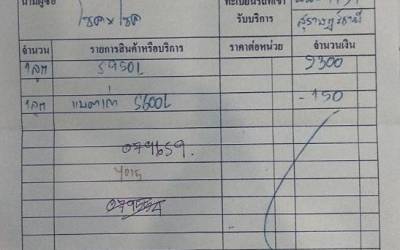 นามผู้ซื้อ โชคxโชค ทะเบียนรถที่เข้ารับบริการ สุราษฎร์ธานี
จำนวน รายการสินค้าหรือบริการ ราคาต่อหน่วย จำนวนเงิน
1ลูก S950L 2300
1ลูก แบตเก่า S600L -150
079659.